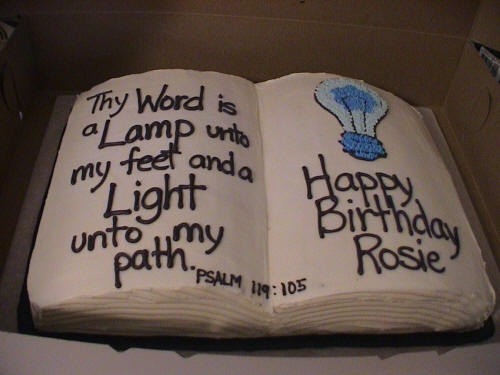 Thy Word is
a Lamp unto
my feet and a
Light
unto my
path.
PSALM 119:105
Happy
Birthday
Rosie